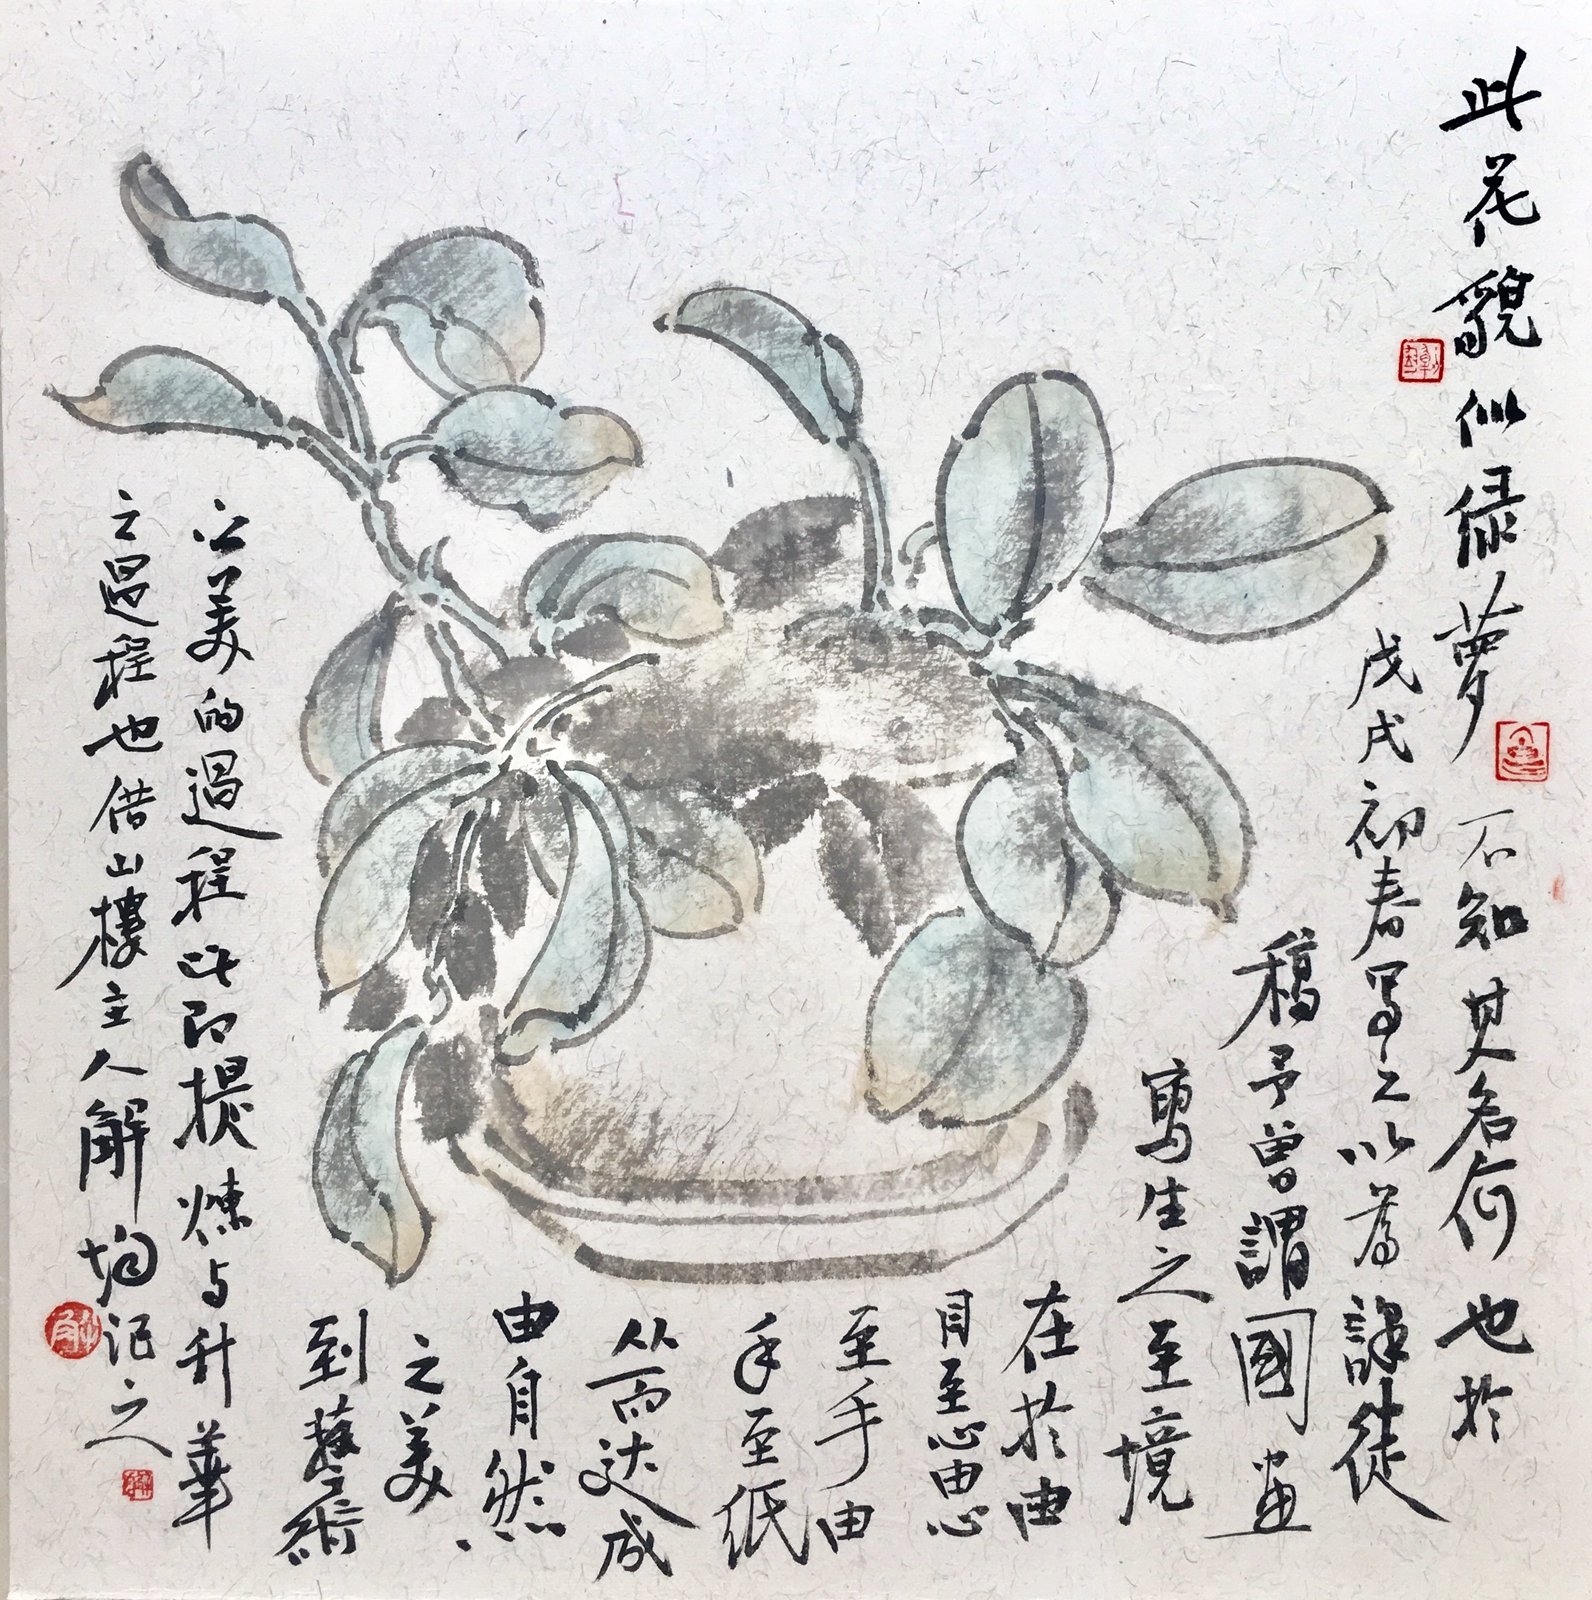 此花貌似绿萝
不知其名何也於
戊戌初春写之以为課徒
稿予曾謂國畫
寫生之至境
在於由
目至心由心
至手由
手至纸
从而达成
由自然
之美
到藝術
之美的過程此即提煉与升華
之過程也借山樓主人解均记之